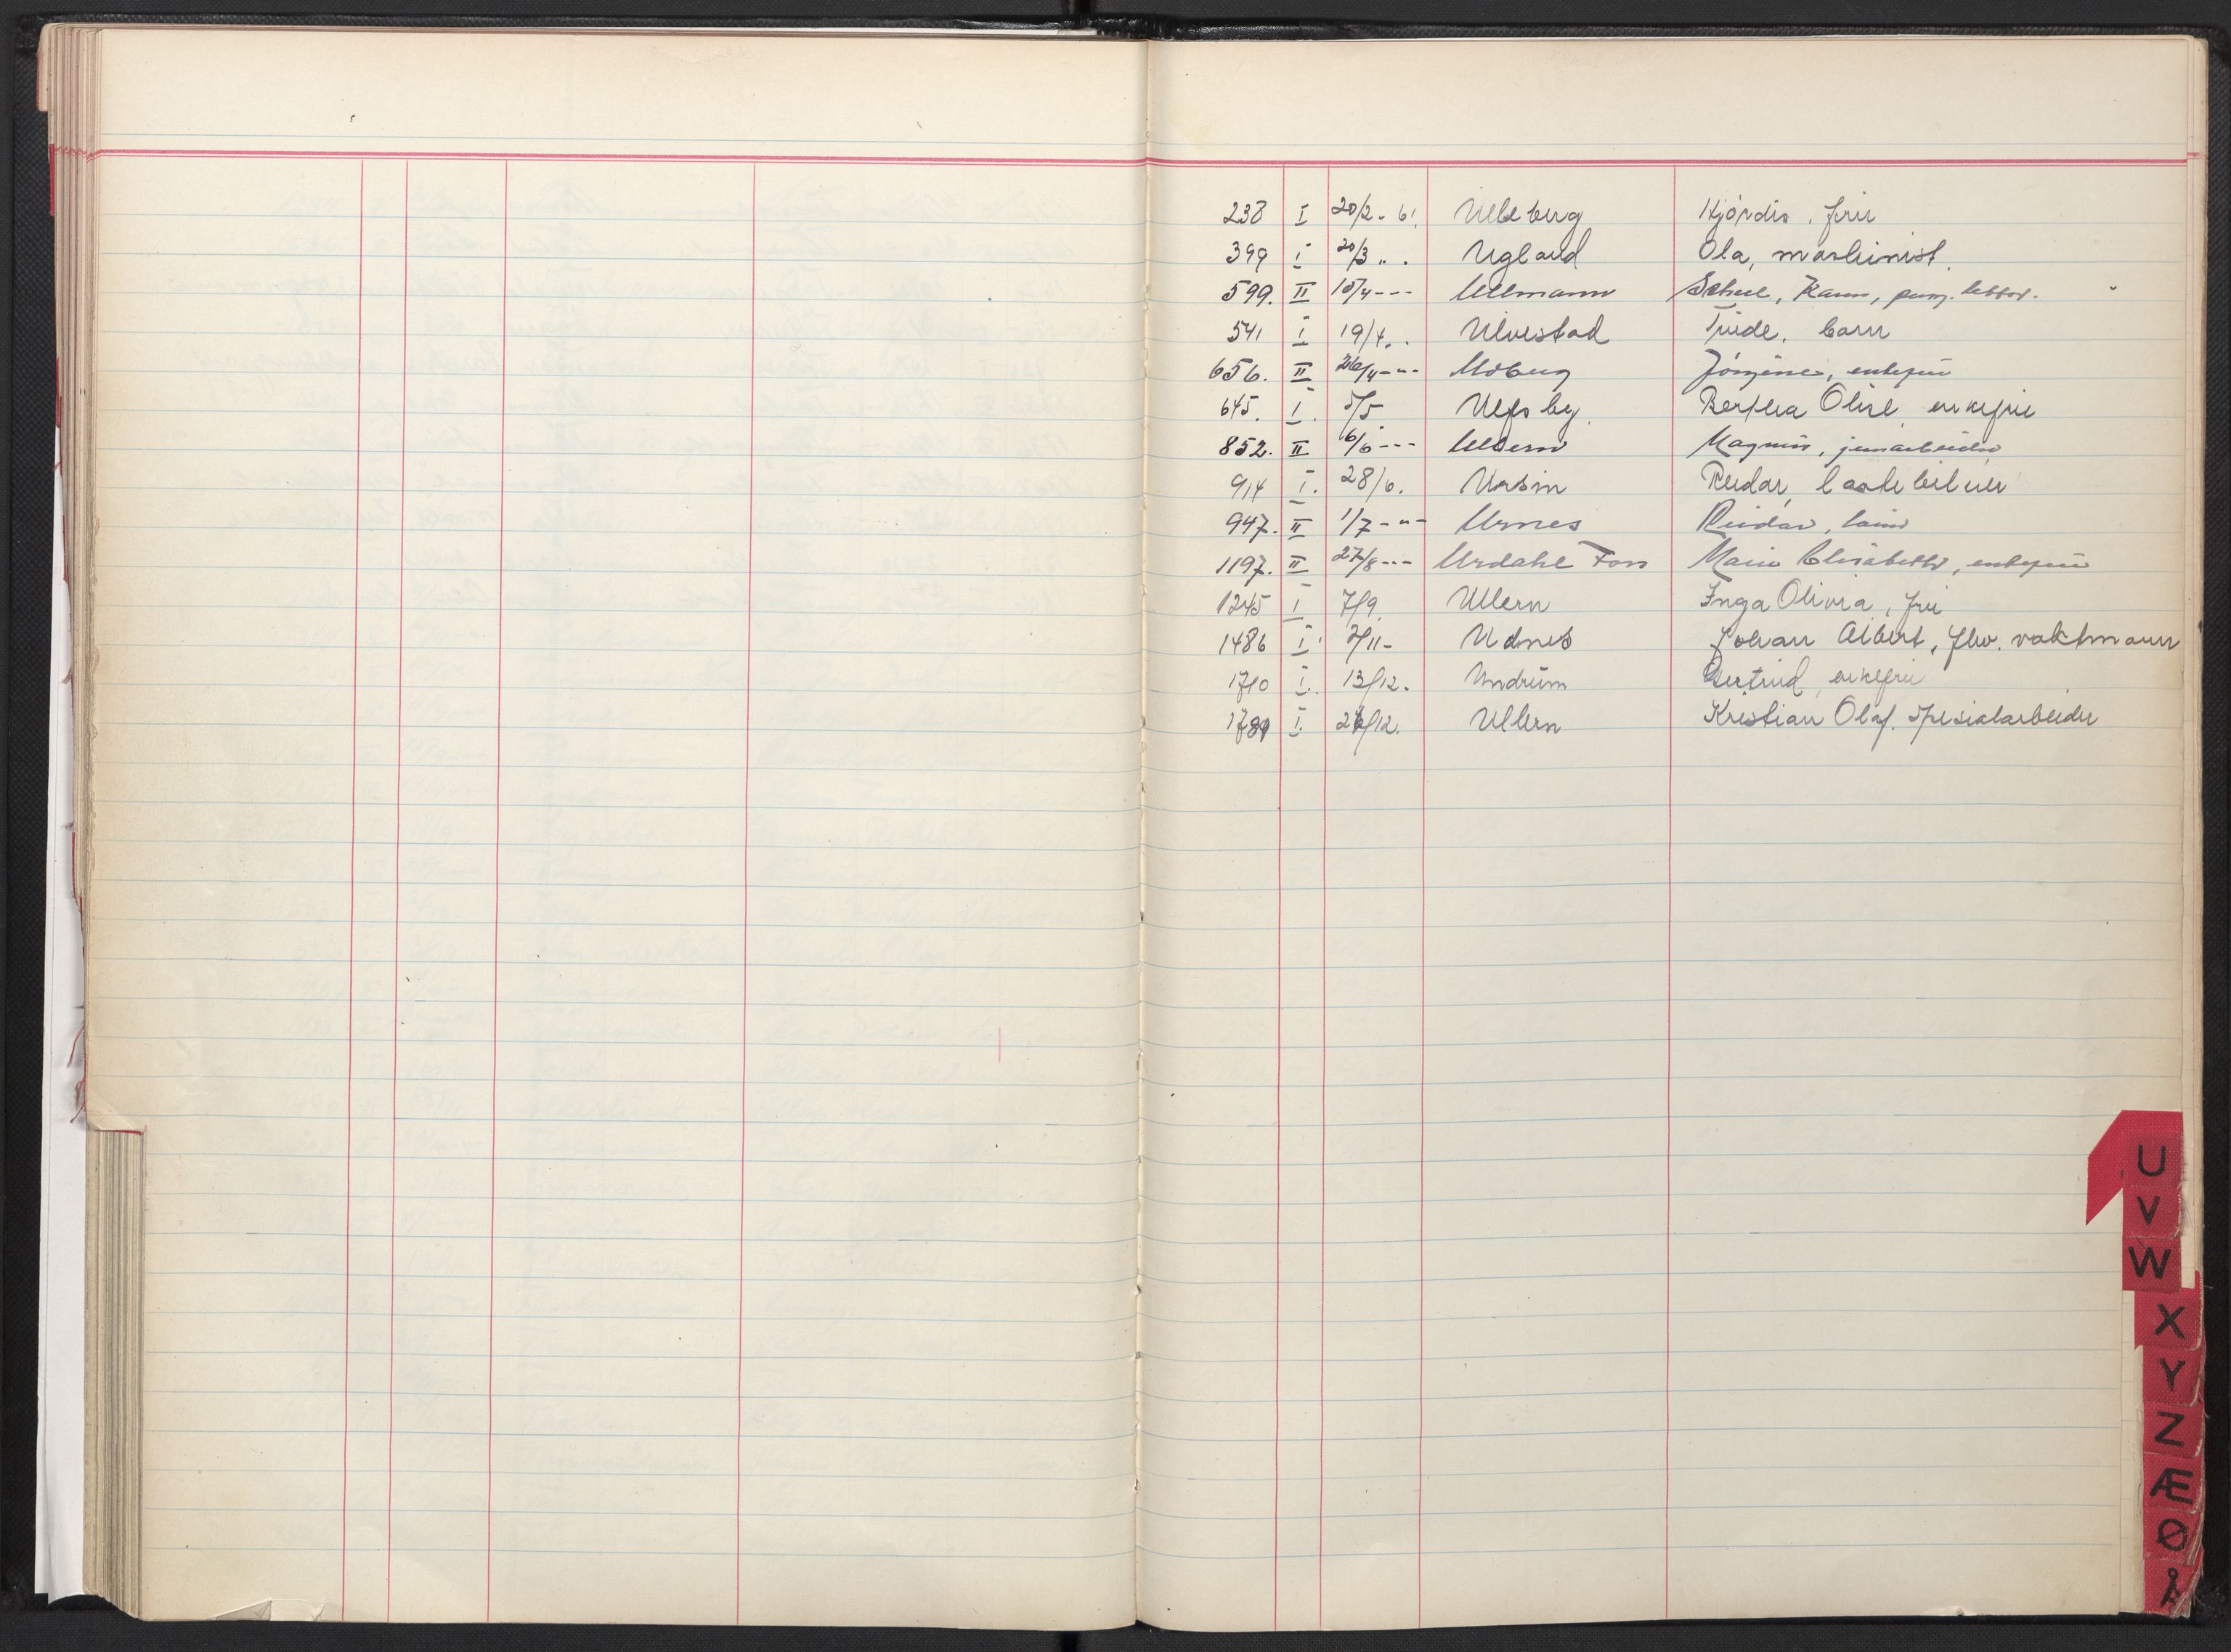 238 I 20/2 - 61 Ulleberg Hjørdis, fru
399 I 20/3 " . Ugland Ola, maskinist.
599. II 15/4 --- Ullmann Scheel, Karen, pensj. lektor.
541 I 19/4 . . Ulvestad Trude, barn
656. II 26/4 -"- Moberg Jörgine, enkefru
645. I. 5/5 Ulfsby Bertha Olise enkefru
852. II 6/6 --- Ullern Magnus, jernarbeider
914 I. 28/6. Ursin Reidar,
947. II 1/7 -"- Urnes Reidar,
1197. II 27/8 --- Urdahl Foss Marie Elisabeth, enkefru
1245 I 7/9. Ullern Inga Olivia, fru
1486 I 3/11 - Udnes Johan Albert, fhv. vaktmann
1710 I. 13/12. Undrum Gertrud enkefru
1789 I. 26/12. Ullern Kristian Olaf. Spesialarbeider
U
V
W
X
Y
Z
Æ
Ø
Å